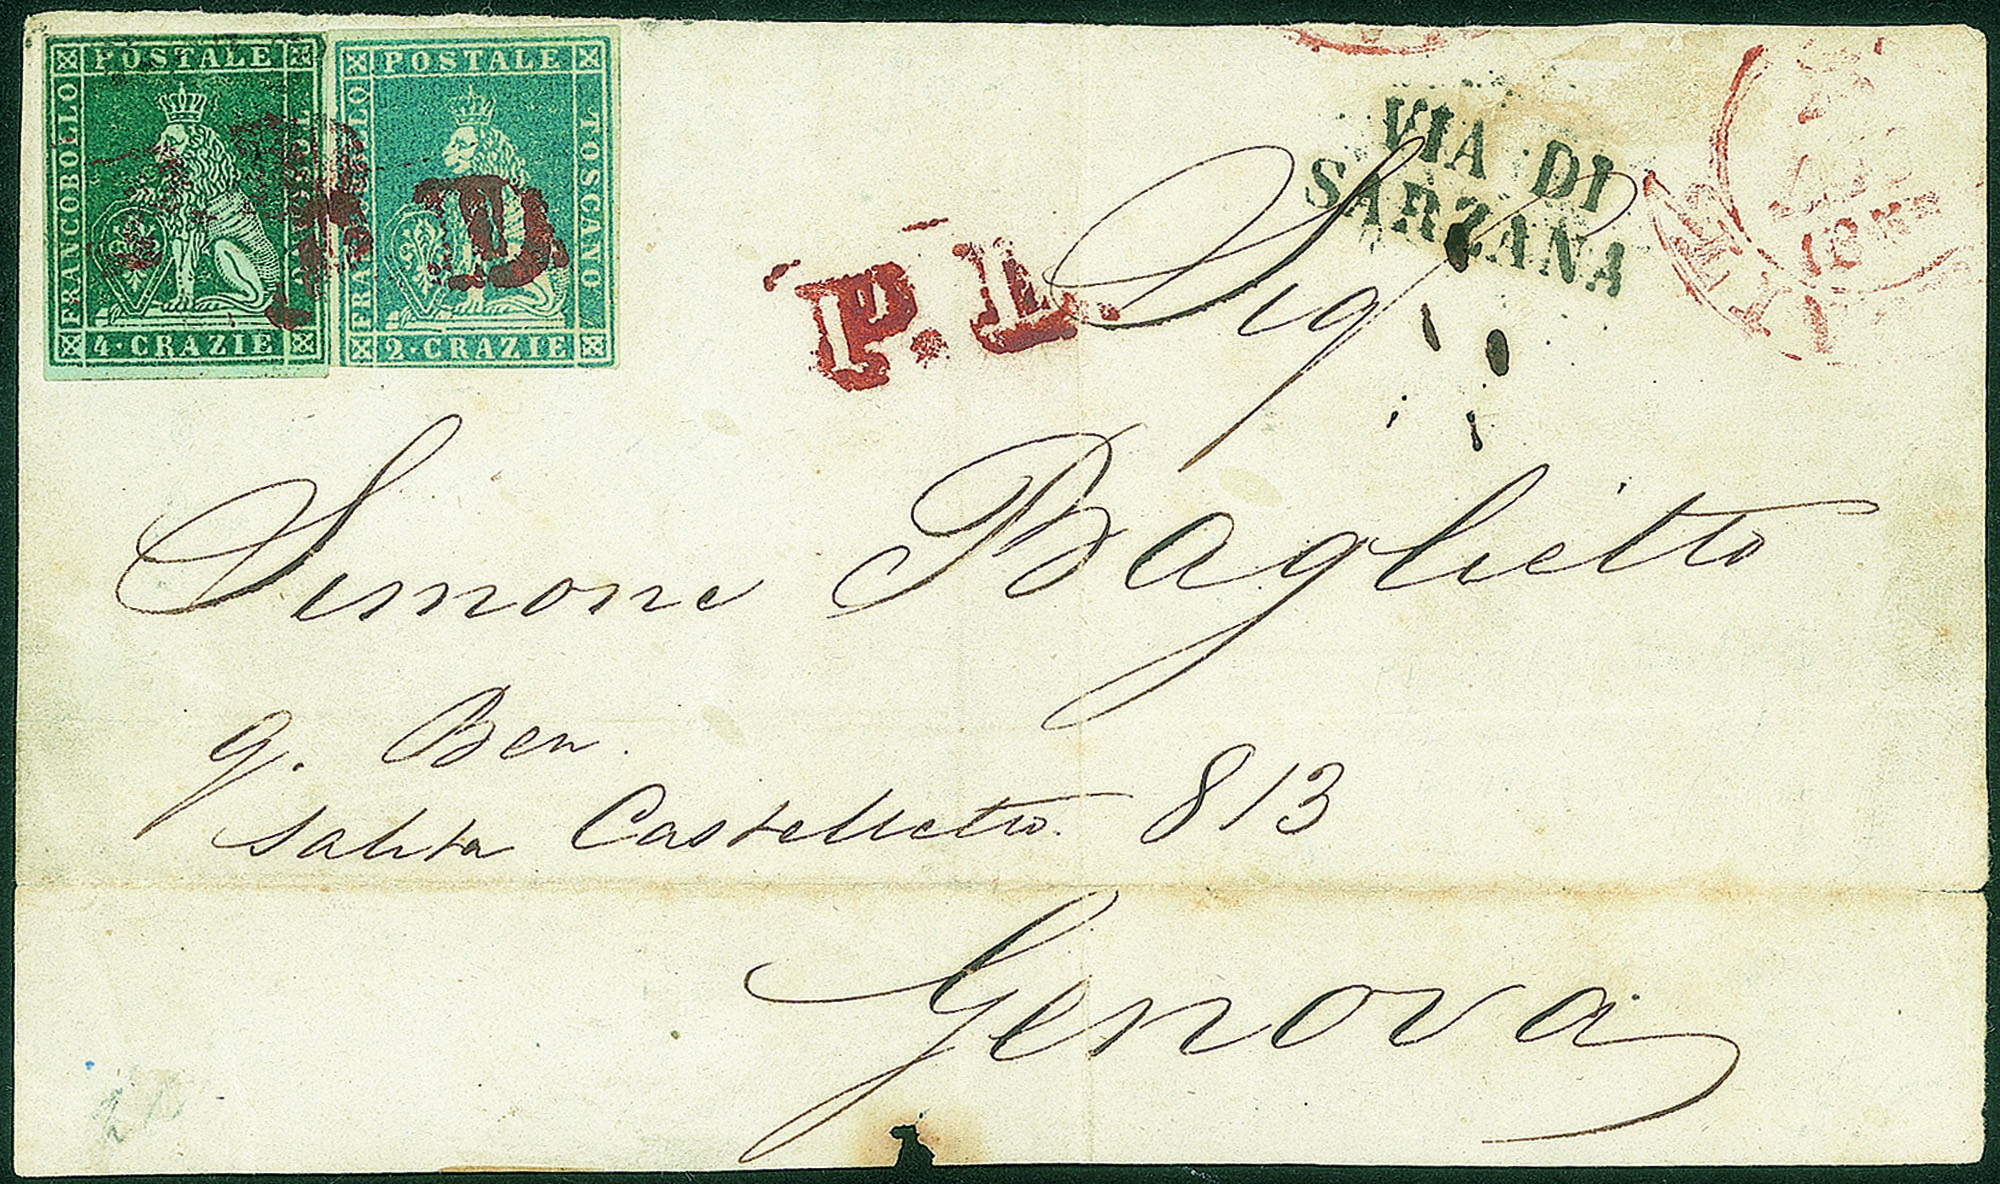 POSTALE
FRANCOBOLLO
4·CRAZIE
POSTALE
TOSCANO
2·CRAZIE
P.D
P.L.
VIA DI
SARZANA
Sigr
Simone Baglietto
q. Ben.
Salita Castelletto. 813
Genova